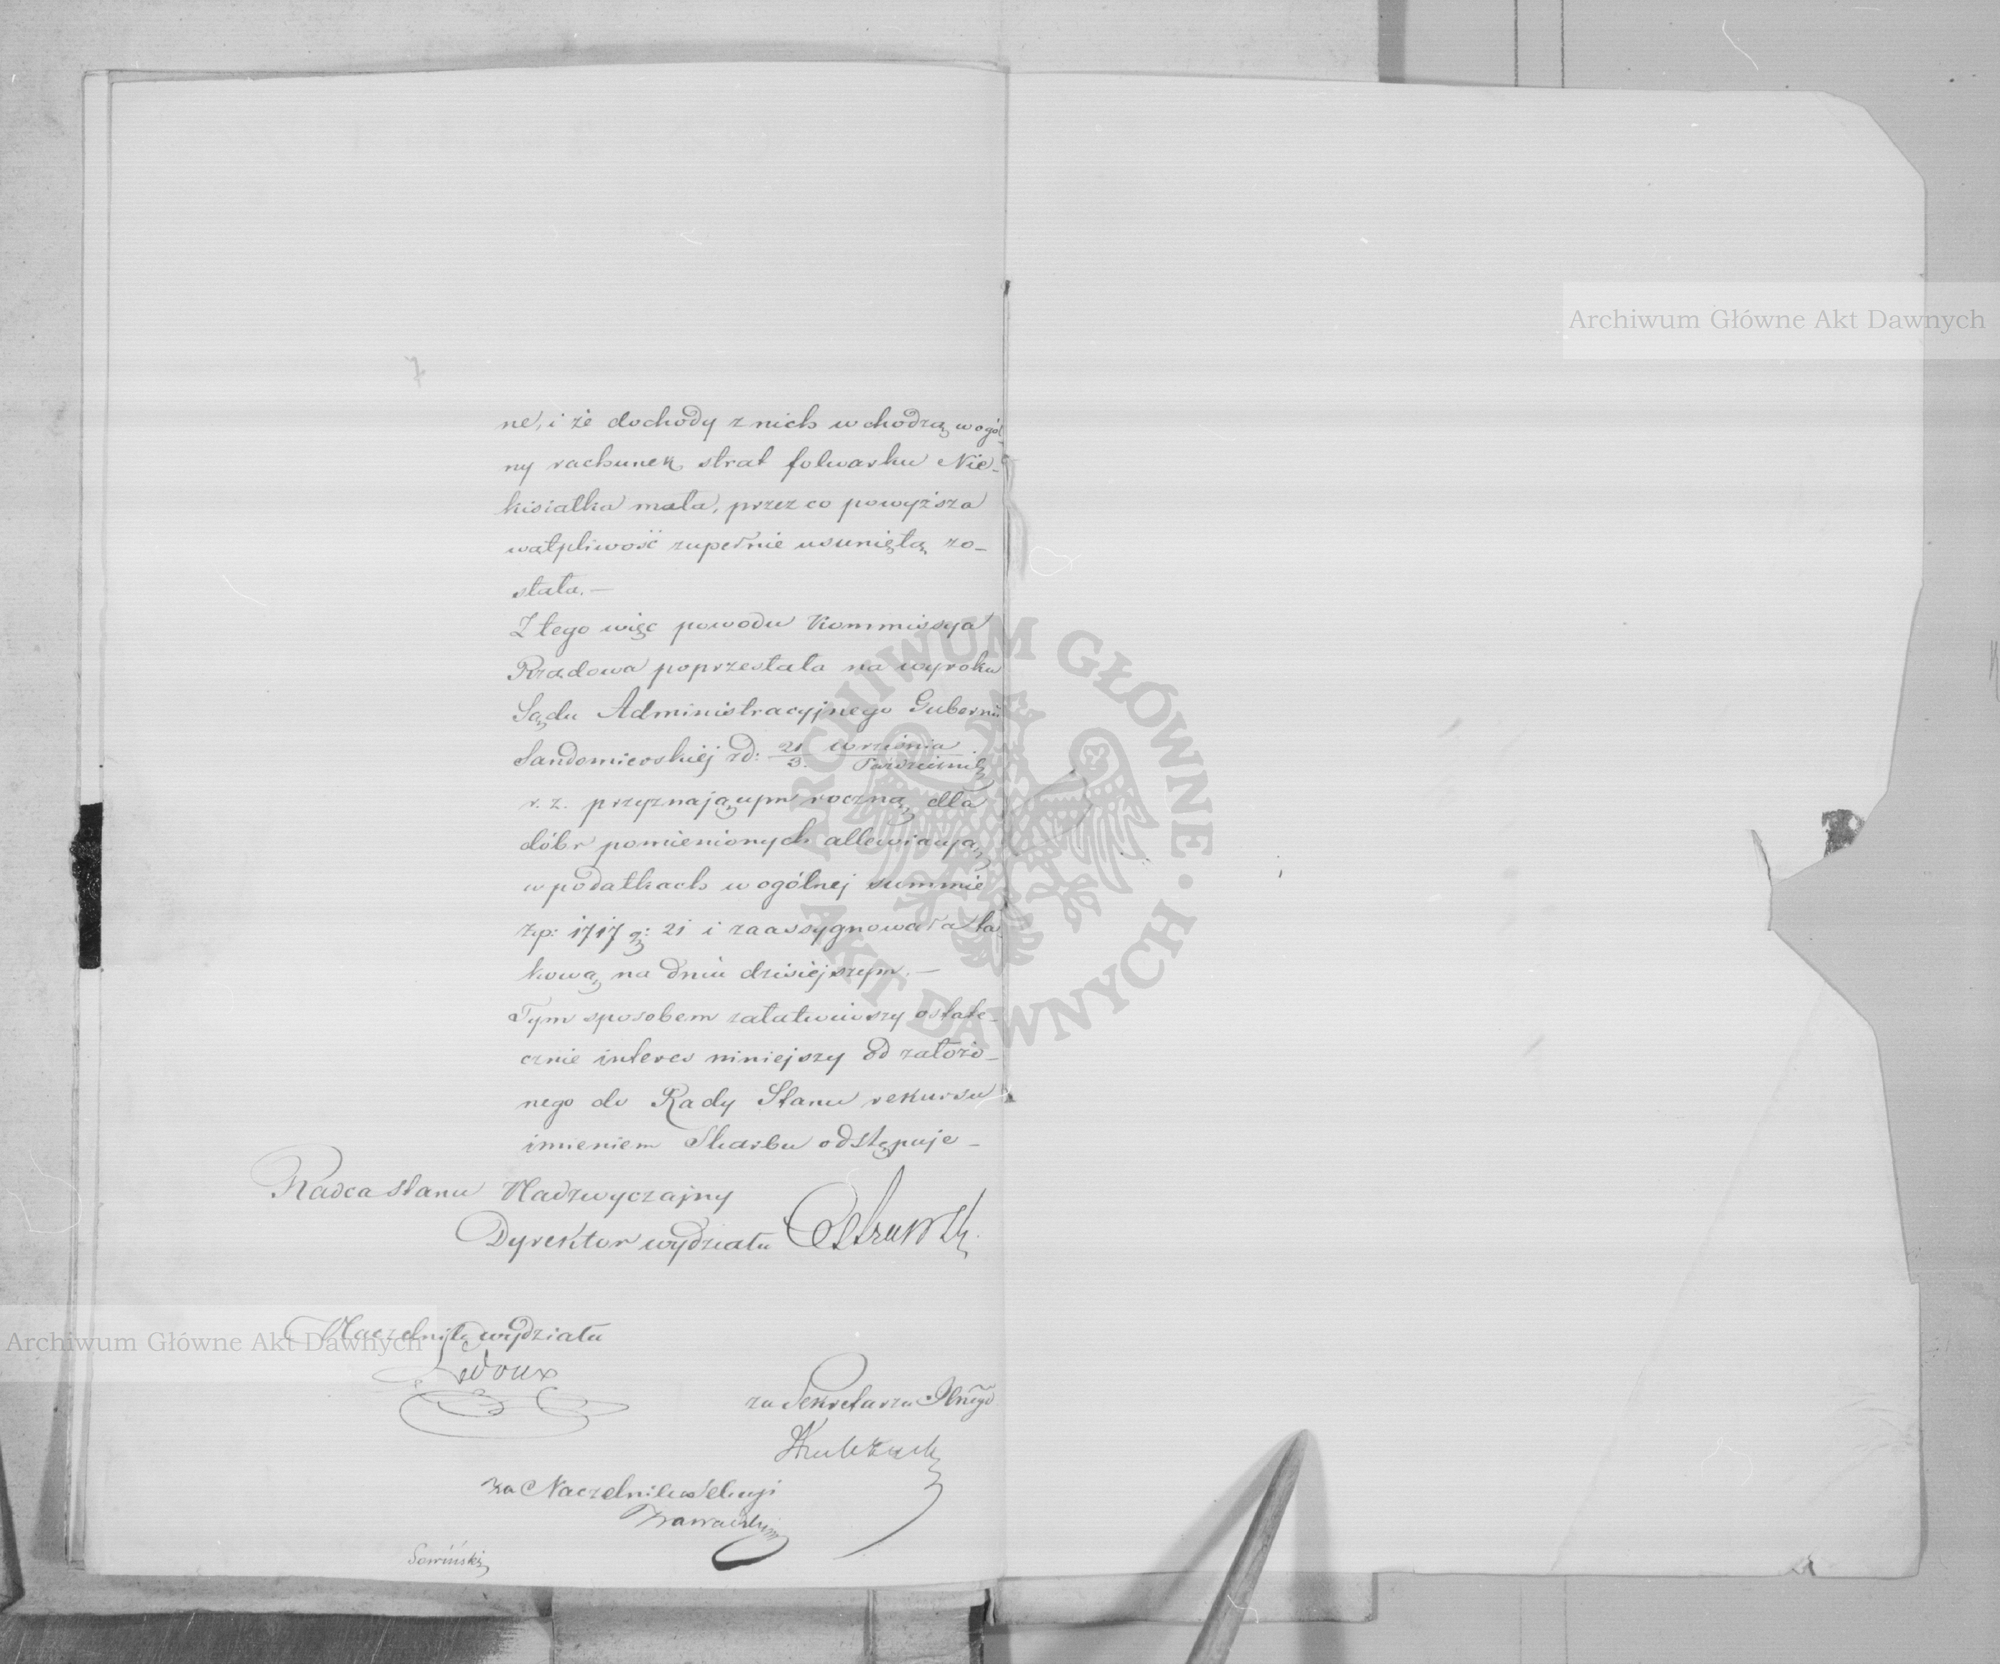 ne, i że dochody z nich wchodzą w ogól-
ny rachunek strat folwarku Nie-
kisiałka mała, przez co powyższa
wątpliwość zupełnie usuniętą zo-
stała.—
Z tego więc powodu Kommissya
Rządowa poprzestała na wyroku
Sądu Administracyjnego Gubernii
Sandomierskiej zd: 21/3. Września/Październik
r. z. przyznającym roczną dla
dóbr pomienionych allewiacyą
w podatkach w ogólnej summie
złp: 1717 g: 21 i zaassygnowała ta-
kową na dniu dzisiejszym.—
Tym sposobem załatwiwszy ostate-
cznie interes niniejszy od założo-
nego do Rady Stanu rekursu
imieniem Skarbu odstępuje—
Radca Stanu Nadzwyczajny
Dyrektor wydziału
Naczelnik wydziału
Ledoux
za Sekretarza
za Naczelnika Sekcyi
Sowiński
Archiwum Główne Akt Dawnych
Archiwum Główne Akt Dawnych
ARCHIWUM GŁÓWNE · AKT DAWNYCH ·